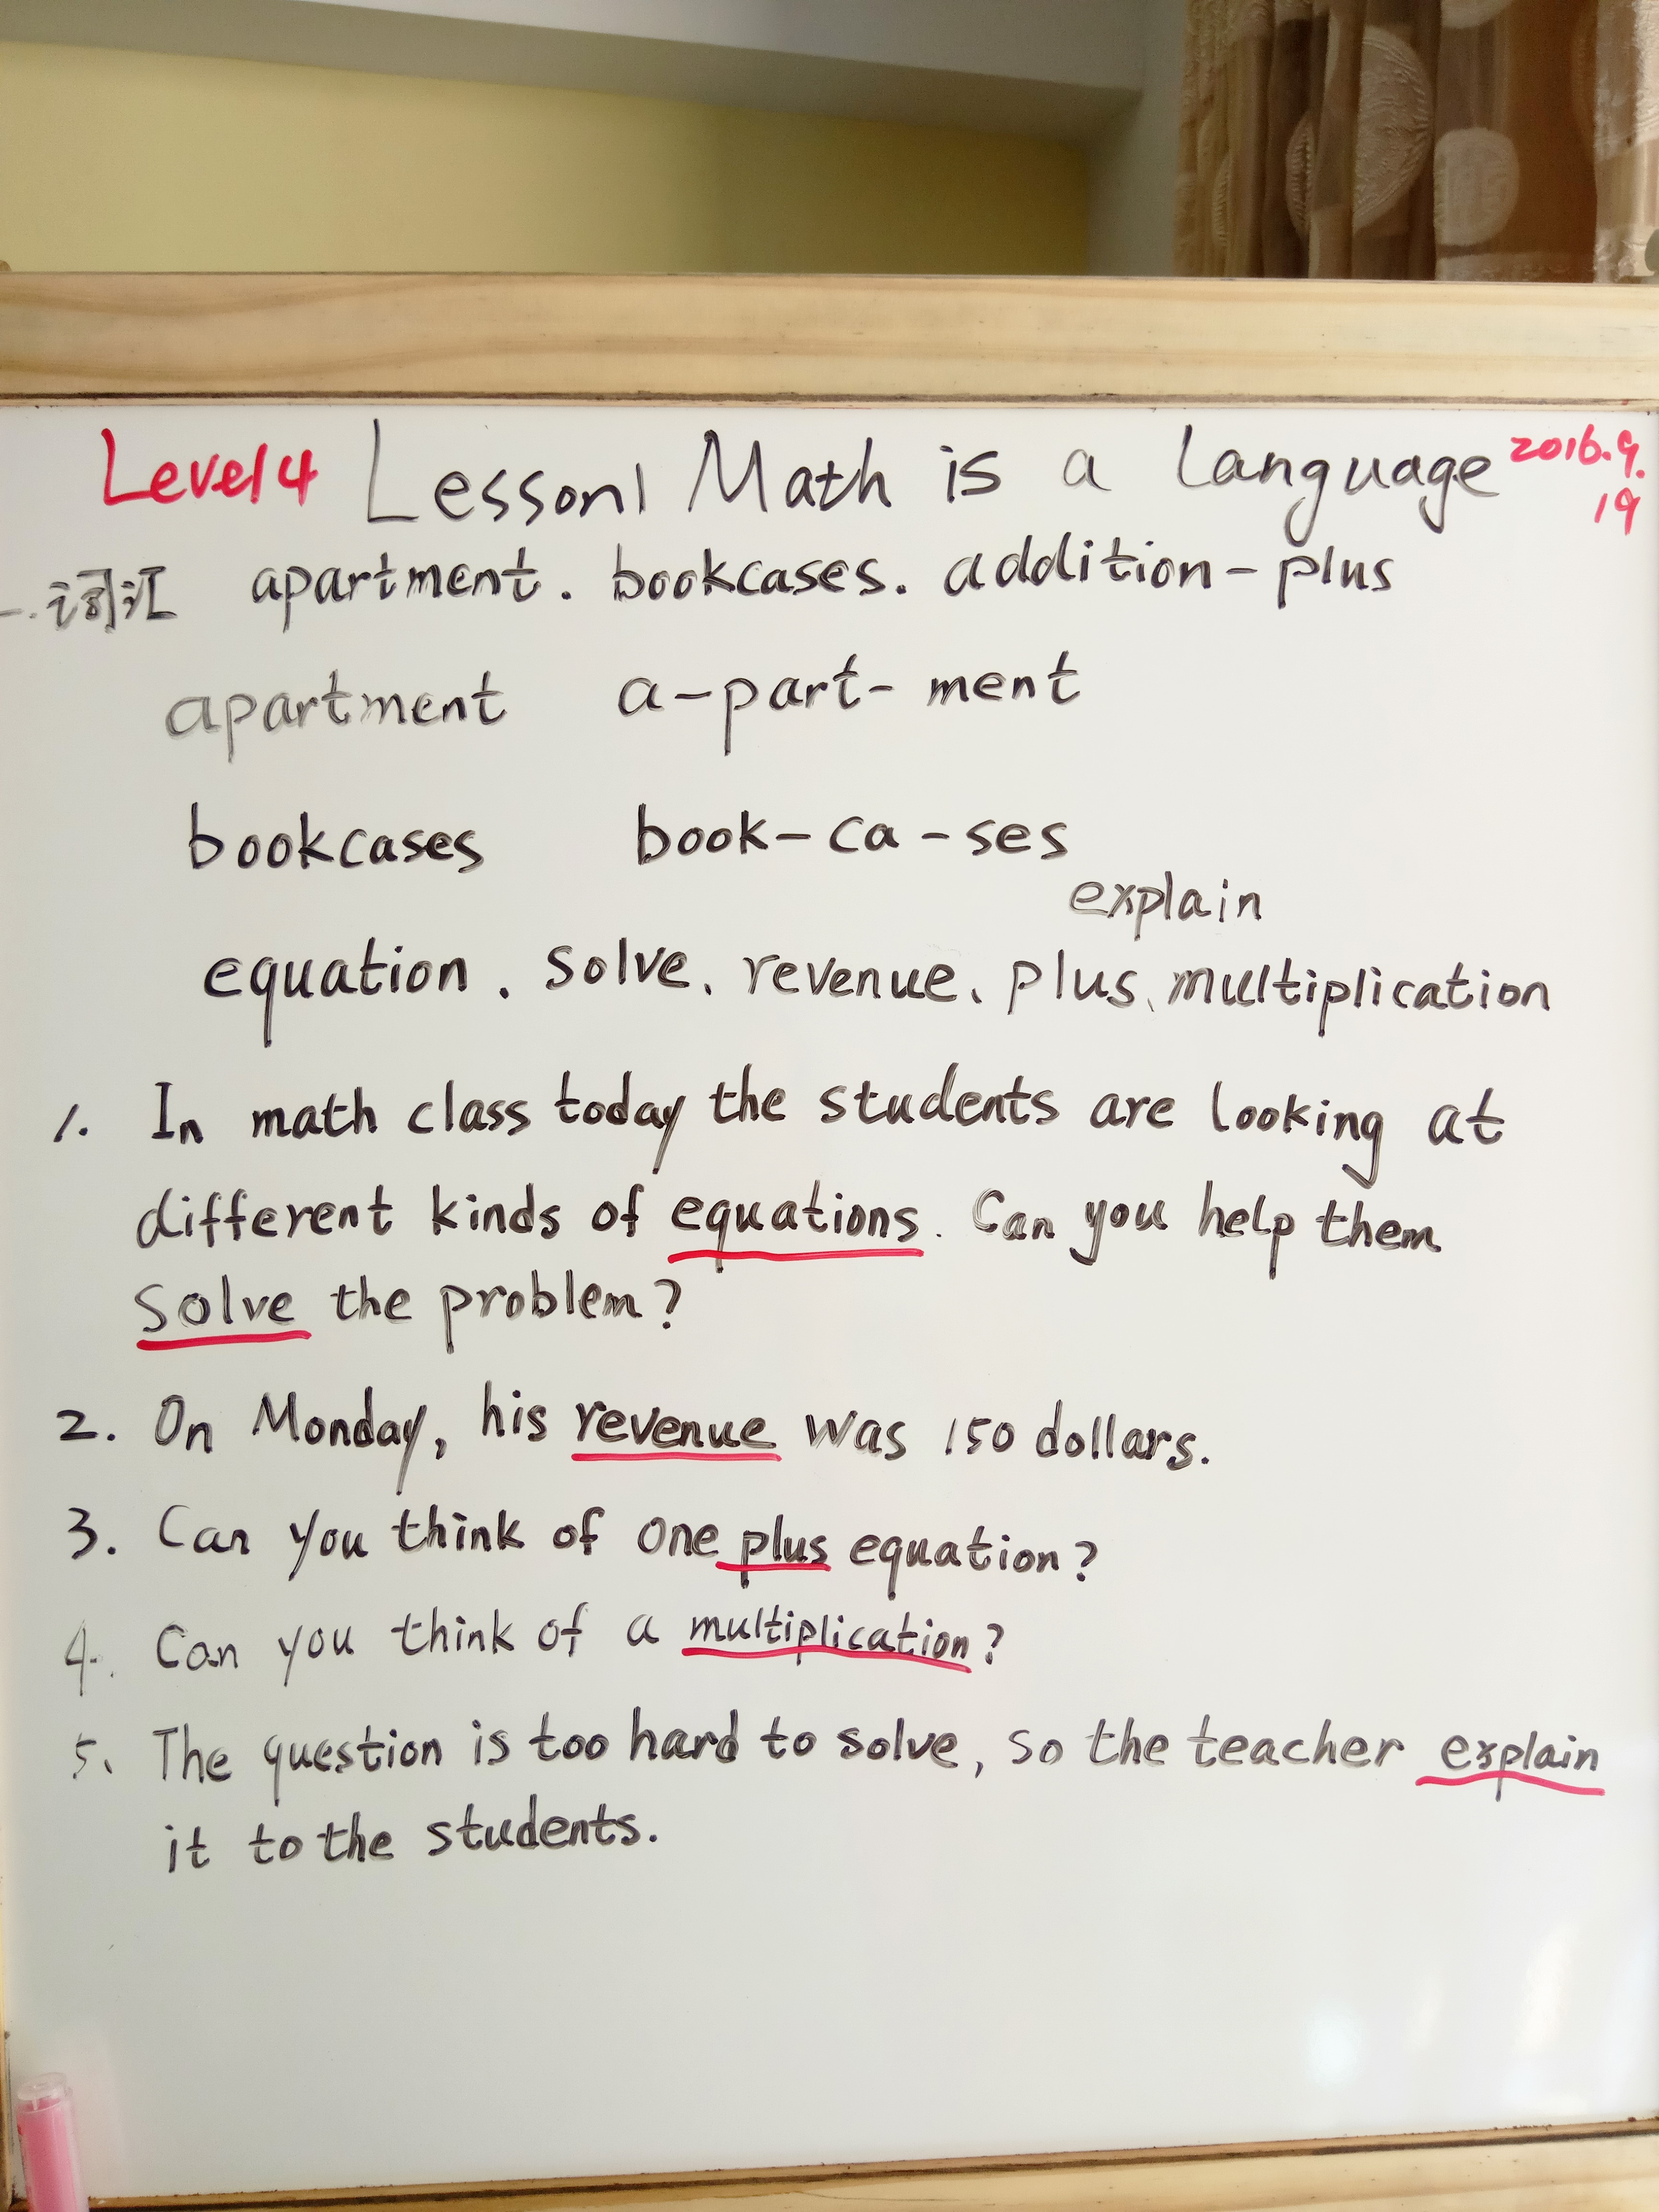 Level 4 Lesson 1 Math is a language 2016.9.
19
一.词汇 apartment. bookcases. addition-plus
apartment a-part-ment
bookcases book-ca-ses
explain
equation. solve、revenue、plus、multiplication
1. In math class today the students are looking at
different kinds of equations. Can you help them
solve the problem?
2. On Monday, his revenue was 150 dollars.
3. Can you think of one plus equation?
4. Can you think of a multiplication?
5、The question is too hard to solve, so the teacher explain
it to the students.